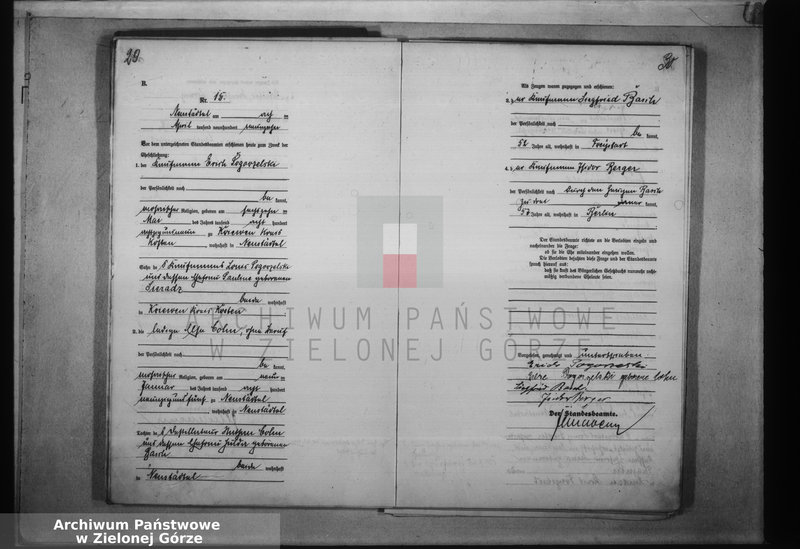 29
B.
Nr. 15.
Neustädtel am acht
April tausend neunhundert neunzehn
Vor dem unterzeichneten Standesbeamten erschienen heute zum Zweck der
Eheschließung:
1. der Kaufmann Erich Pogorzelski
der Persönlichkeit nach
be kannt,
mosaischer Religion, geboren am
Mai des Jahres tausend acht hundert
zu Kreis
Kosten, wohnhaft in Neustädtel
Sohn des Kaufmanns Louis Pogorzelski
und dessen Ehefrau Pauline geborenen
Sieradz
beide wohnhaft
in Kreis Kosten
2. die ledige Else Cohn, ohne Beruf
der Persönlichkeit nach
be kannt,
mosaischer Religion, geboren am neun
Januar des Jahres tausend acht hundert
neunzigundfünf zu Neustädtel
, wohnhaft in Neustädtel
Tochter des Destillateur Cohn
und dessen Ehefrau Hulda geborenen
Basch
beide wohnhaft
in Neustädtel
30
Als Zeugen waren zugezogen und erschienen:
3. der Kaufmann Siegfried Basch
der Persönlichkeit nach
be kannt,
52 Jahre alt, wohnhaft in Freystadt
4. der Kaufmann Isidor Berger
der Persönlichkeit nach durch den Zeugen Basch
kannt,
57 Jahre alt, wohnhaft in Berlin
Der Standesbeamte richtete an die Verlobten einzeln und
nacheinander die Frage:
ob sie die Ehe miteinander eingehen wollen.
Die Verlobten bejahten diese Frage und der Standesbeamte
sprach hierauf aus:
daß sie kraft des Bürgerlichen Gesetzbuchs nunmehr rechtmäßig verbundene Eheleute seien.
Vorgelesen, genehmigt und unterschrieben
Erich Pogorzelski
Else Pogorzelski geborene Cohn
Siegfried Basch
Isidor Berger
Der Standesbeamte.
ARCHIWUM PAŃSTWOWE
W ZIELONEJ GÓRZE
Archiwum Państwowe
w Zielonej Górze